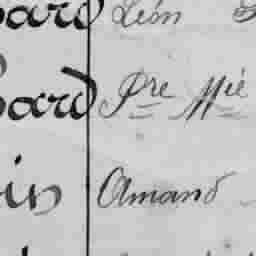 ard Léon
ard Pre Mie
in Amand